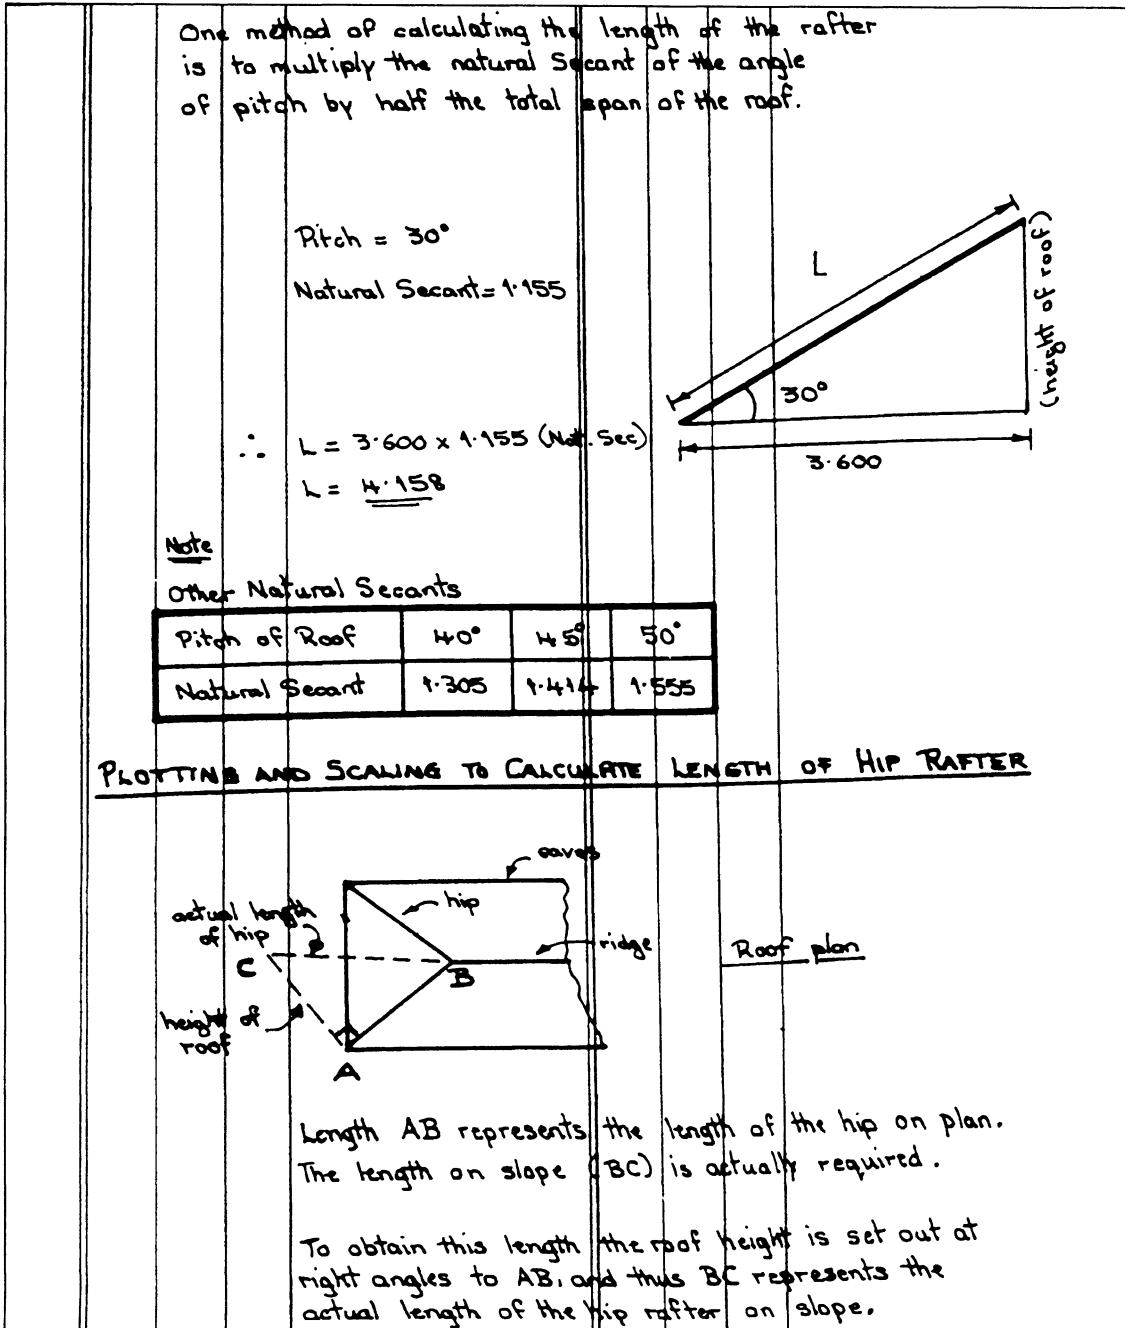 One method of calculating the length of the rafter
is to multiply the natural Secant of the angle
of pitch by half the total span of the roof.
Pitch = 30°
Natural Secant = 1·155
L
(height of roof)
30°
3·600
∴ L = 3·600 x 1·155 (Nat. Sec)
L = 4·158
Note
Other Natural Secants
Pitch of Roof 40° 45° 50°
Natural Secant 1·305 1·414 1·555
PLOTTING AND SCALING TO CALCULATE LENGTH OF HIP RAFTER
eaves
hip
actual length
of hip
ridge
Roof plan
C
B
height of
roof
A
Length AB represents the length of the hip on plan.
The length on slope (BC) is actually required.
To obtain this length the roof height is set out at
right angles to AB, and thus BC represents the
actual length of the hip rafter on slope.